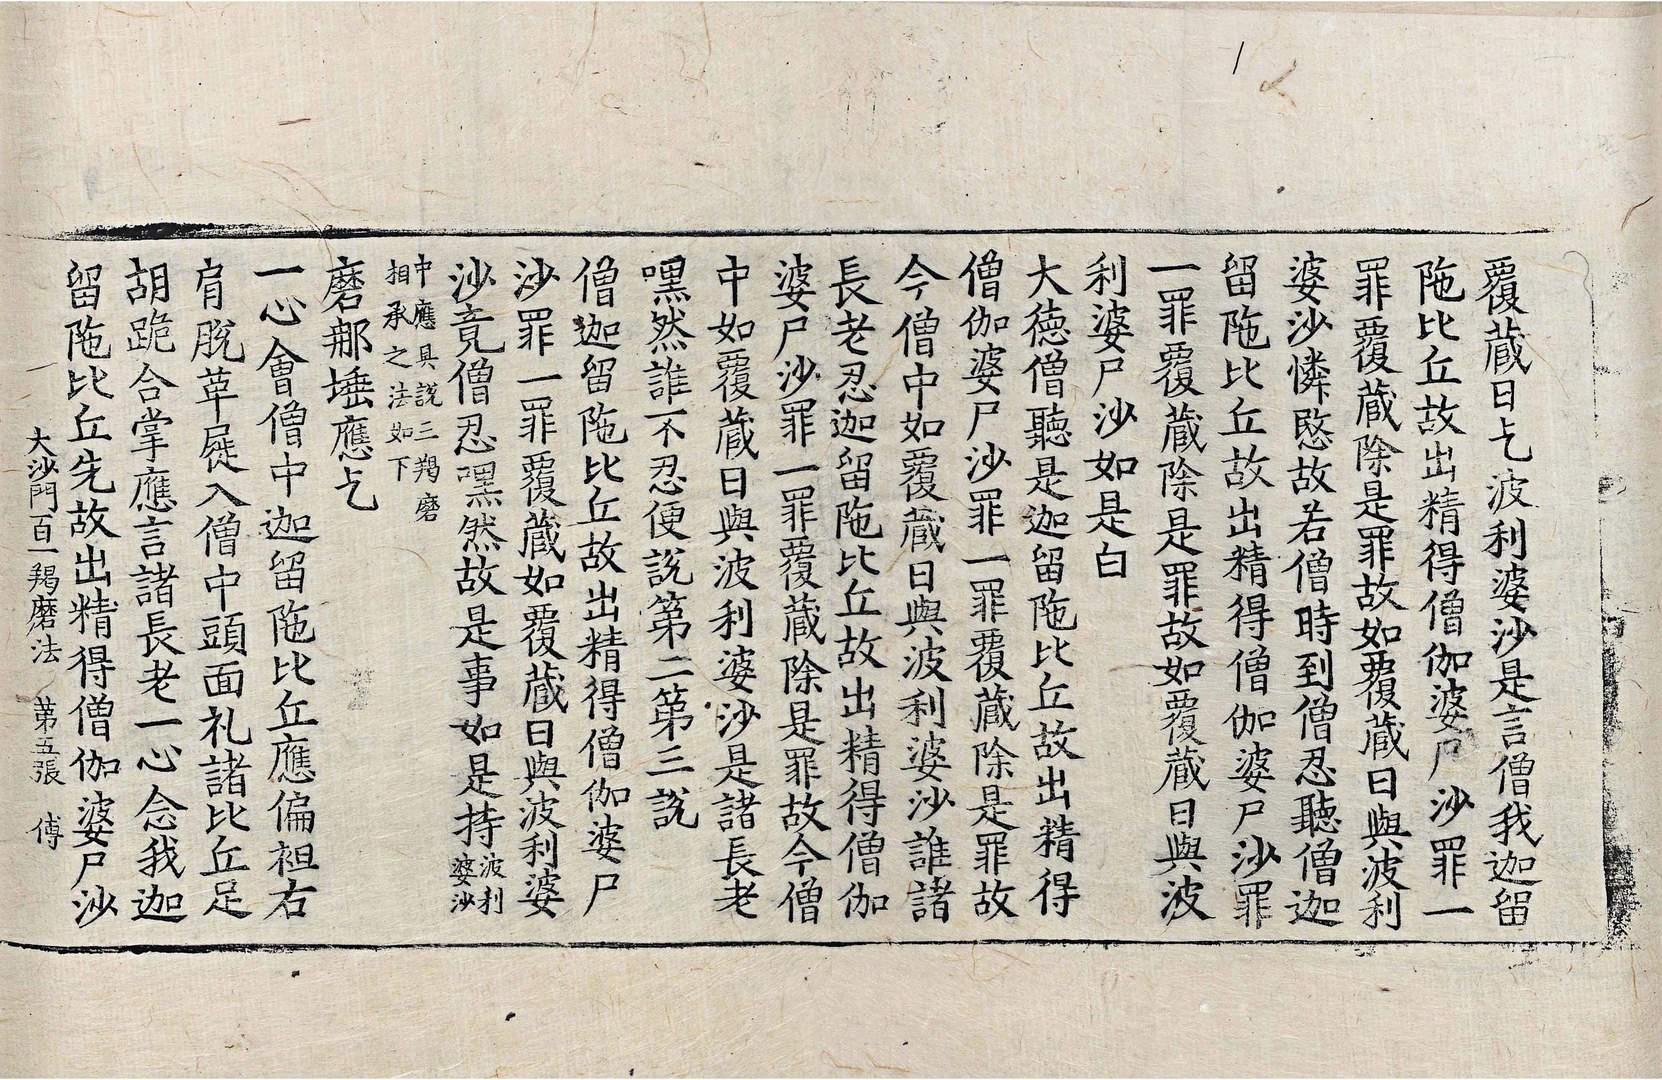 覆蔵日乞波利婆沙是言僧我迦留
陁比丘故出精得僧伽婆尸沙罪一
罪覆蔵除是罪故如覆蔵日與波利
婆沙憐愍故若僧時到僧忍聽僧迦
留陁比丘故出精得僧伽婆尸沙罪
一罪覆蔵除是罪故如覆蔵日與波
利婆尸沙如是白
大徳僧聽是迦留陁比丘故出精得
僧伽婆尸沙罪一罪覆蔵除是罪故
今僧中如覆蔵日與波利婆沙誰諸
長老忍迦留陁比丘故出精得僧伽
婆尸沙罪一罪覆蔵除是罪故今僧
中如覆蔵日與波利婆沙是諸長老
嘿然誰不忍便説第二第三説
僧迦留陁比丘故出精得僧伽婆尸
沙罪一罪覆蔵如覆蔵日與波利婆
沙竟僧忍嘿然故是事如是持波利婆沙
中應具説三羯磨
相承之法如下
磨那埵應乞
一心會僧中迦留陁比丘應偏袒右
肩脫革屣入僧中頭面礼諸比丘足
胡跪合掌應言諸長老一心念我迦
留陁比丘先故出精得僧伽婆尸沙
大沙門百一羯磨法 第五張 傅